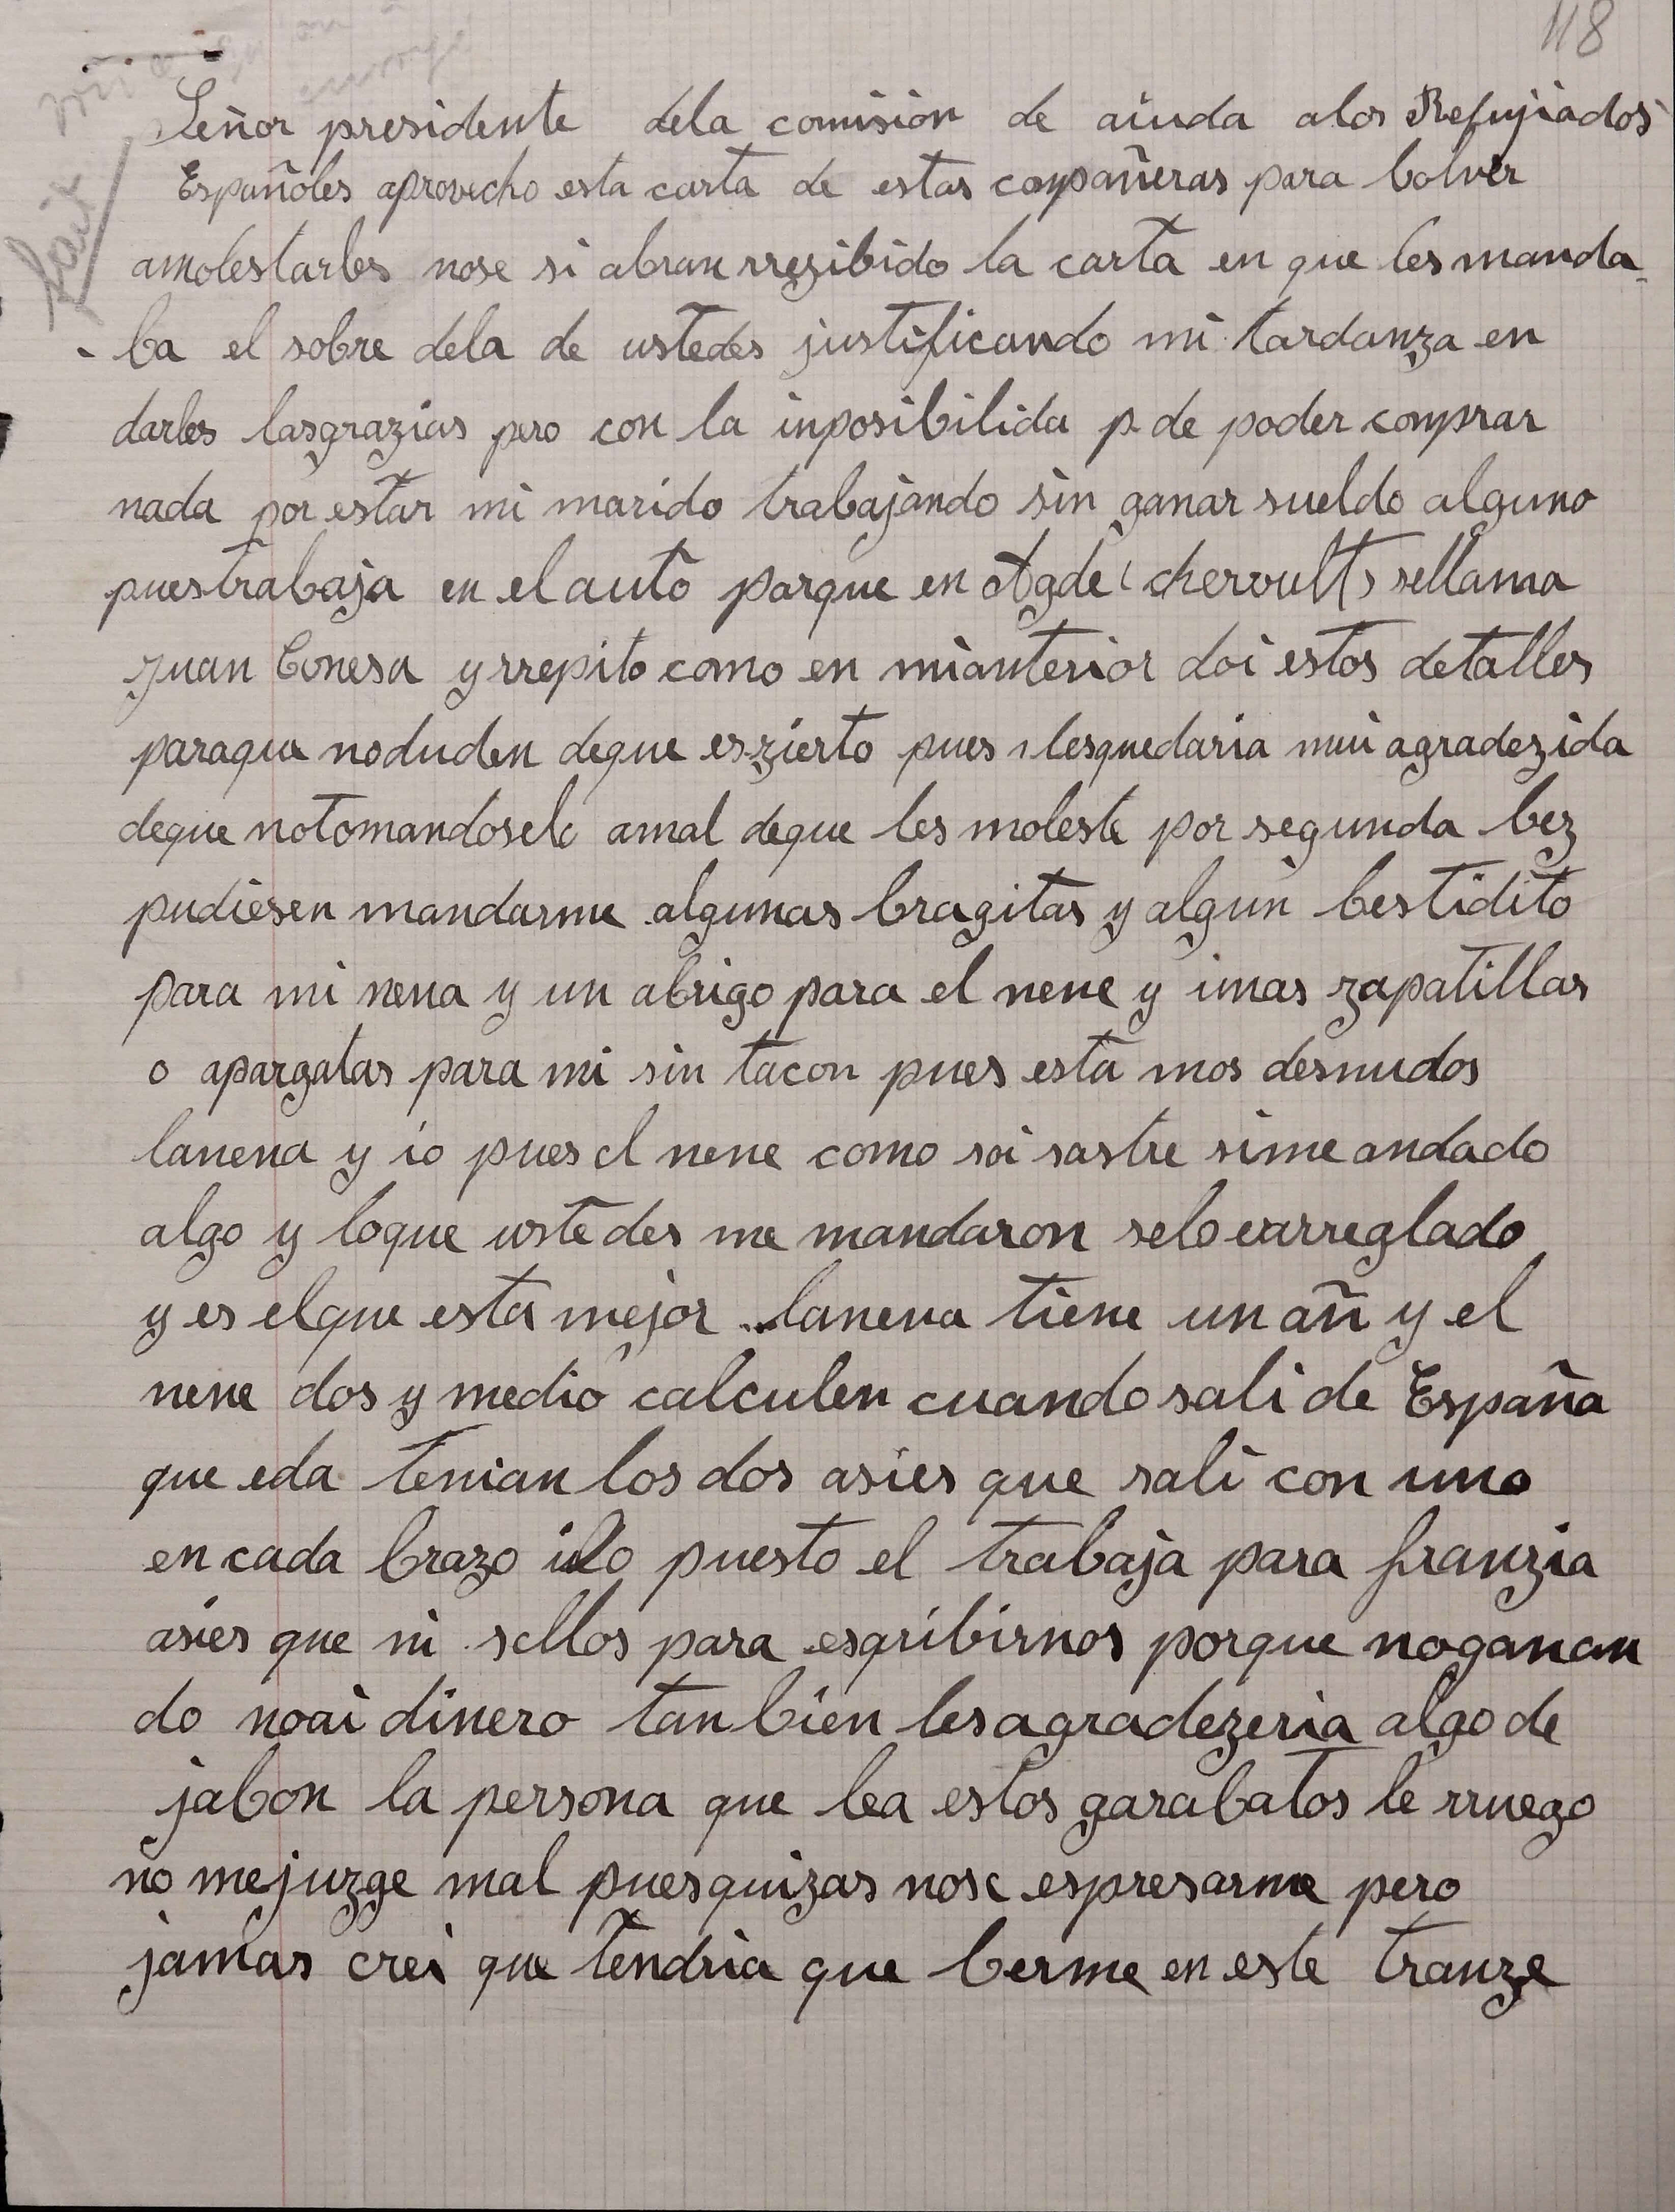 118
fait
Señor presidente dela comisión de aiuda alos Refujiados
Españoles aprovecho esta carta de estas conpañeras para bolver
amolestarles nose si abran rrezibido la carta en que les manda-
- ba el sobre dela de ustedes justificando mi tardanza en
darles lasgrazias pero con la inposibilida p de poder conprar
nada por estar mi marido trabajando sin ganar sueldo alguno
puestrabaja en el auto parque en Agde (cheroult) sellama
Juan Conesa y rrepito como en mianterior doi estos detalles
paraque noduden deque es zierto pues lesquedaria mui agradezida
deque notomandoselo amal deque les moleste por segunda bez
pudiesen mandarme algunas bragitas y algun bestidito
para mi nena y un abrigo para el nene y unas zapatillas
o apargatas para mi sin tacon pues esta mos desnudos
lanena y io pues el nene como soi sastre sime andado
algo y loque ustedes me mandaron selo earreglado
y es elque esta mejor lanena tiene un añ y el
nene dos y medio calculen cuando sali de España
que eda tenian los dos asies que sali con uno
en cada brazo puesto el trabaja para franzia
asies que ni sellos para esqribirnos porque noganan
do noai dinero tanbien lesagradezeria algo de
jabon la persona que lea estos garabatos le rruego
no mejuzge mal puesquizas nose espresarme pero
jamas crei que tendria que berme en este tranze